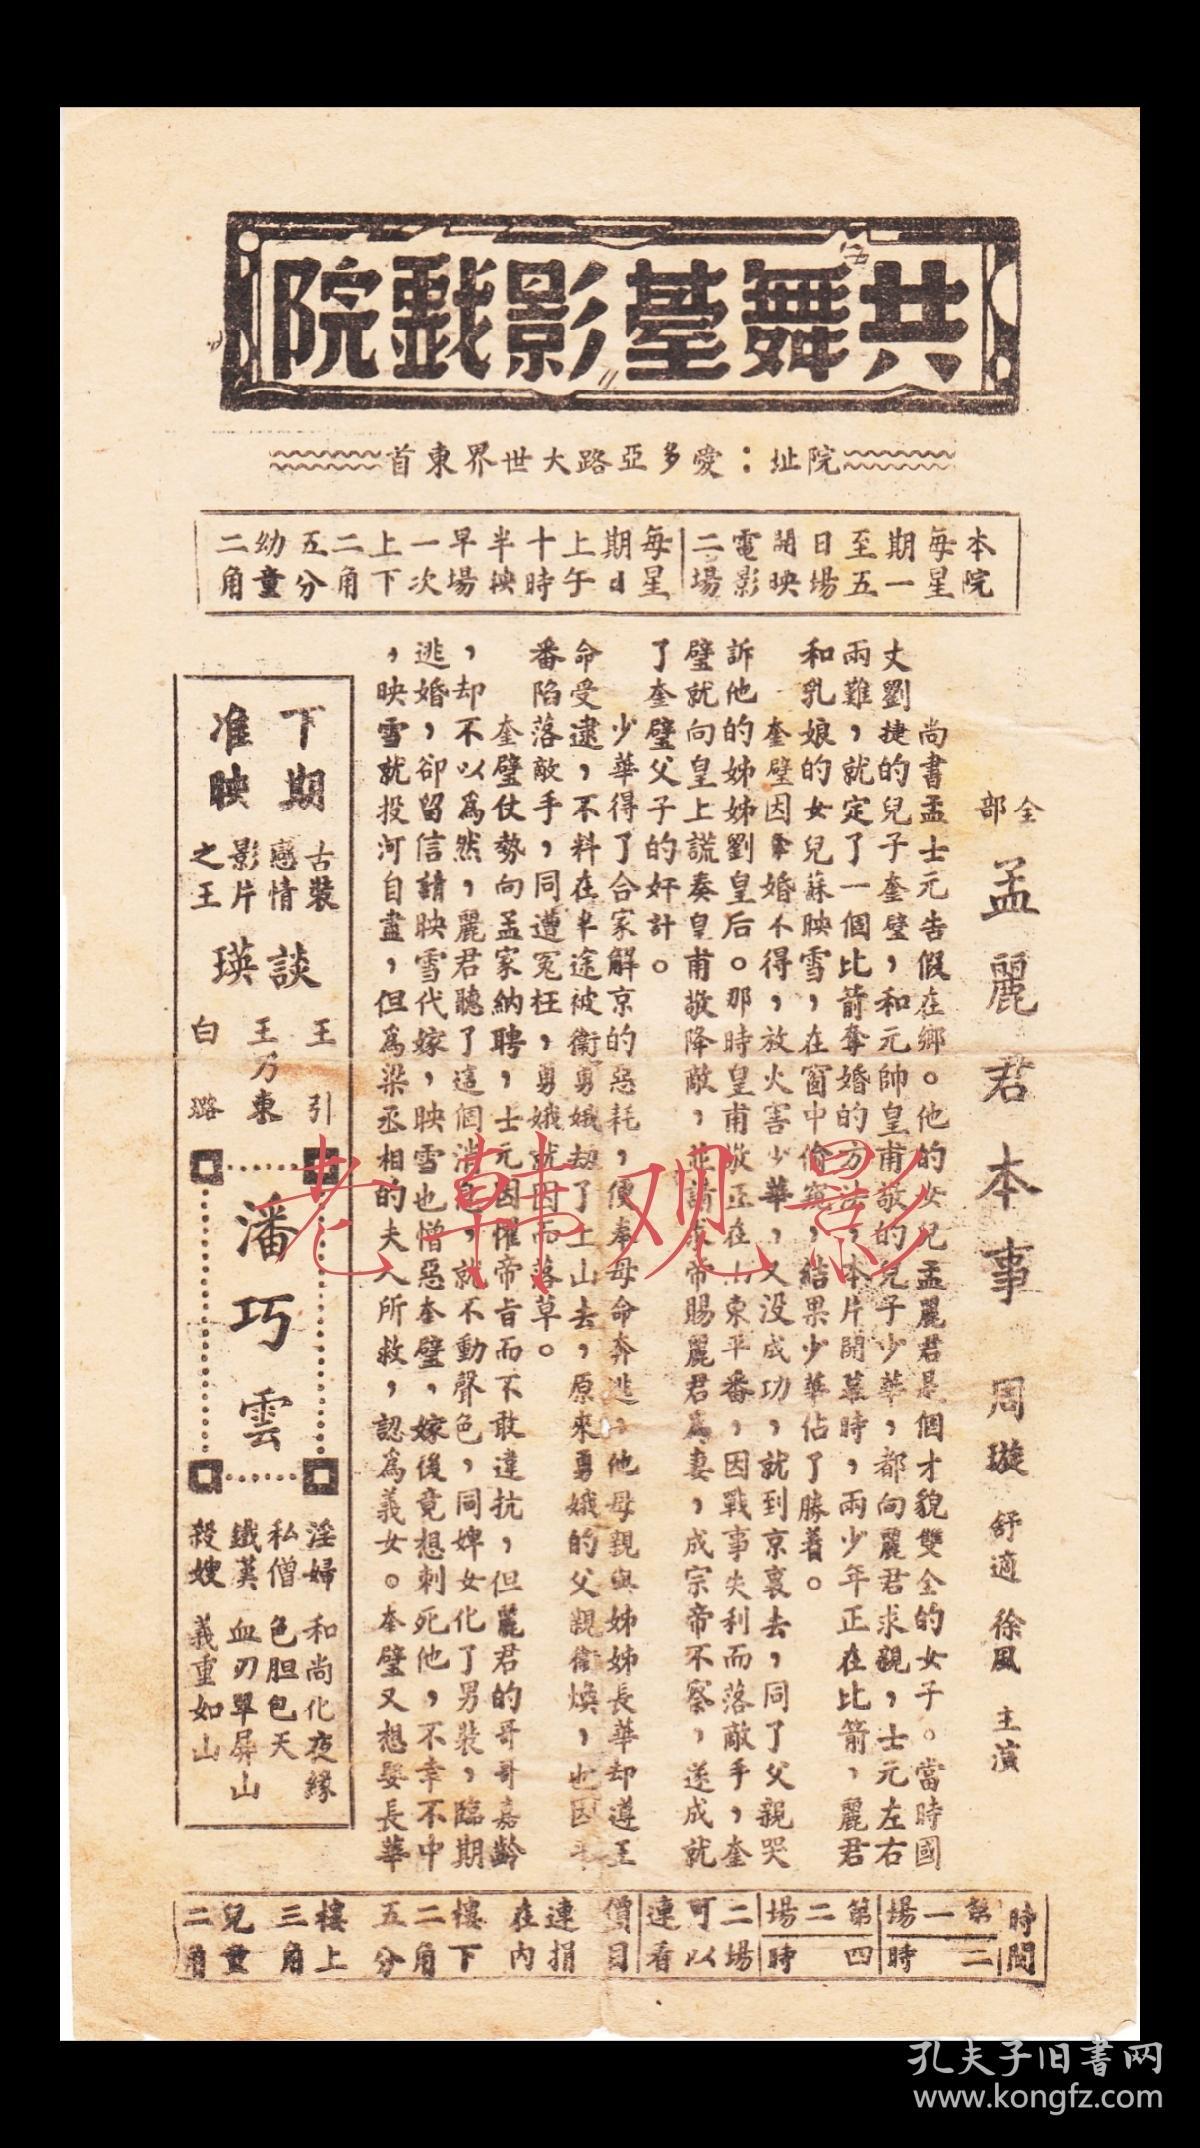 共舞臺影戲院
院址：愛多亞路大世界東首
本院每星期一至五日場開映電影二場
每星期日上午十時半映早場一次上下二角五分幼童二角
全部 孟麗君本事 周璇 舒適 徐風 主演
尚書孟士元告假在鄉。他的女兒孟麗君是個才貌雙全的女子。當時國
丈劉捷的兒子奎璧，和元帥皇甫敬的兒子少華，都向麗君求親，士元左右
兩難，就定了一個比箭奪婚的方法，本片開幕時，兩少年正在比箭，麗君
和乳娘的女兒蘇映雪，在窗中偷窺，結果少華佔了勝着。
奎璧因爭婚不得，放火害少華，又没成功，就到京裏去，同了父親哭
訴他的姊姊劉皇后。那時皇甫敬正在山東平番，因戰事失利而落敵手，奎
璧就向皇上謊奏皇甫敬降敵，並請求帝賜麗君爲妻，成宗帝不察，遂成就
了奎璧父子的奸計。
少華得了合家解京的惡耗，便奉母命奔逃，他母親與姊姊長華却遵王
命受逮，不料在半途被衛勇娥劫了上山去，原來勇娥的父親衛煥，也因平
番陷落敵手，同遭冤枉，勇娥就因而落草。
奎璧仗勢向孟家納聘，士元因懼帝旨而不敢違抗，但麗君的哥哥嘉齡
，却不以爲然，麗君聽了這個消息，就不動聲色，同婢女化了男裝，臨期
逃婚，卻留信請映雪代嫁，映雪也憎惡奎璧，嫁後竟想刺死他，不幸不中
，映雪就投河自盡，但爲梁丞相的夫人所救，認爲義女。奎璧又想娶長華
下期准映
古裝感情影片之王
談瑛
王引
王乃東
白璐
潘巧雲
淫婦私僧 鐵漢殺嫂
和尚化夜緣
色胆包天
血刃單屏山
義重如山
時間
第一場 二時
第二場 四時
二場可以連看
價目
連捐在內
樓下二角五分
樓上三角
兒童二角
老韩观影
孔夫子旧书网
www.kongfz.com